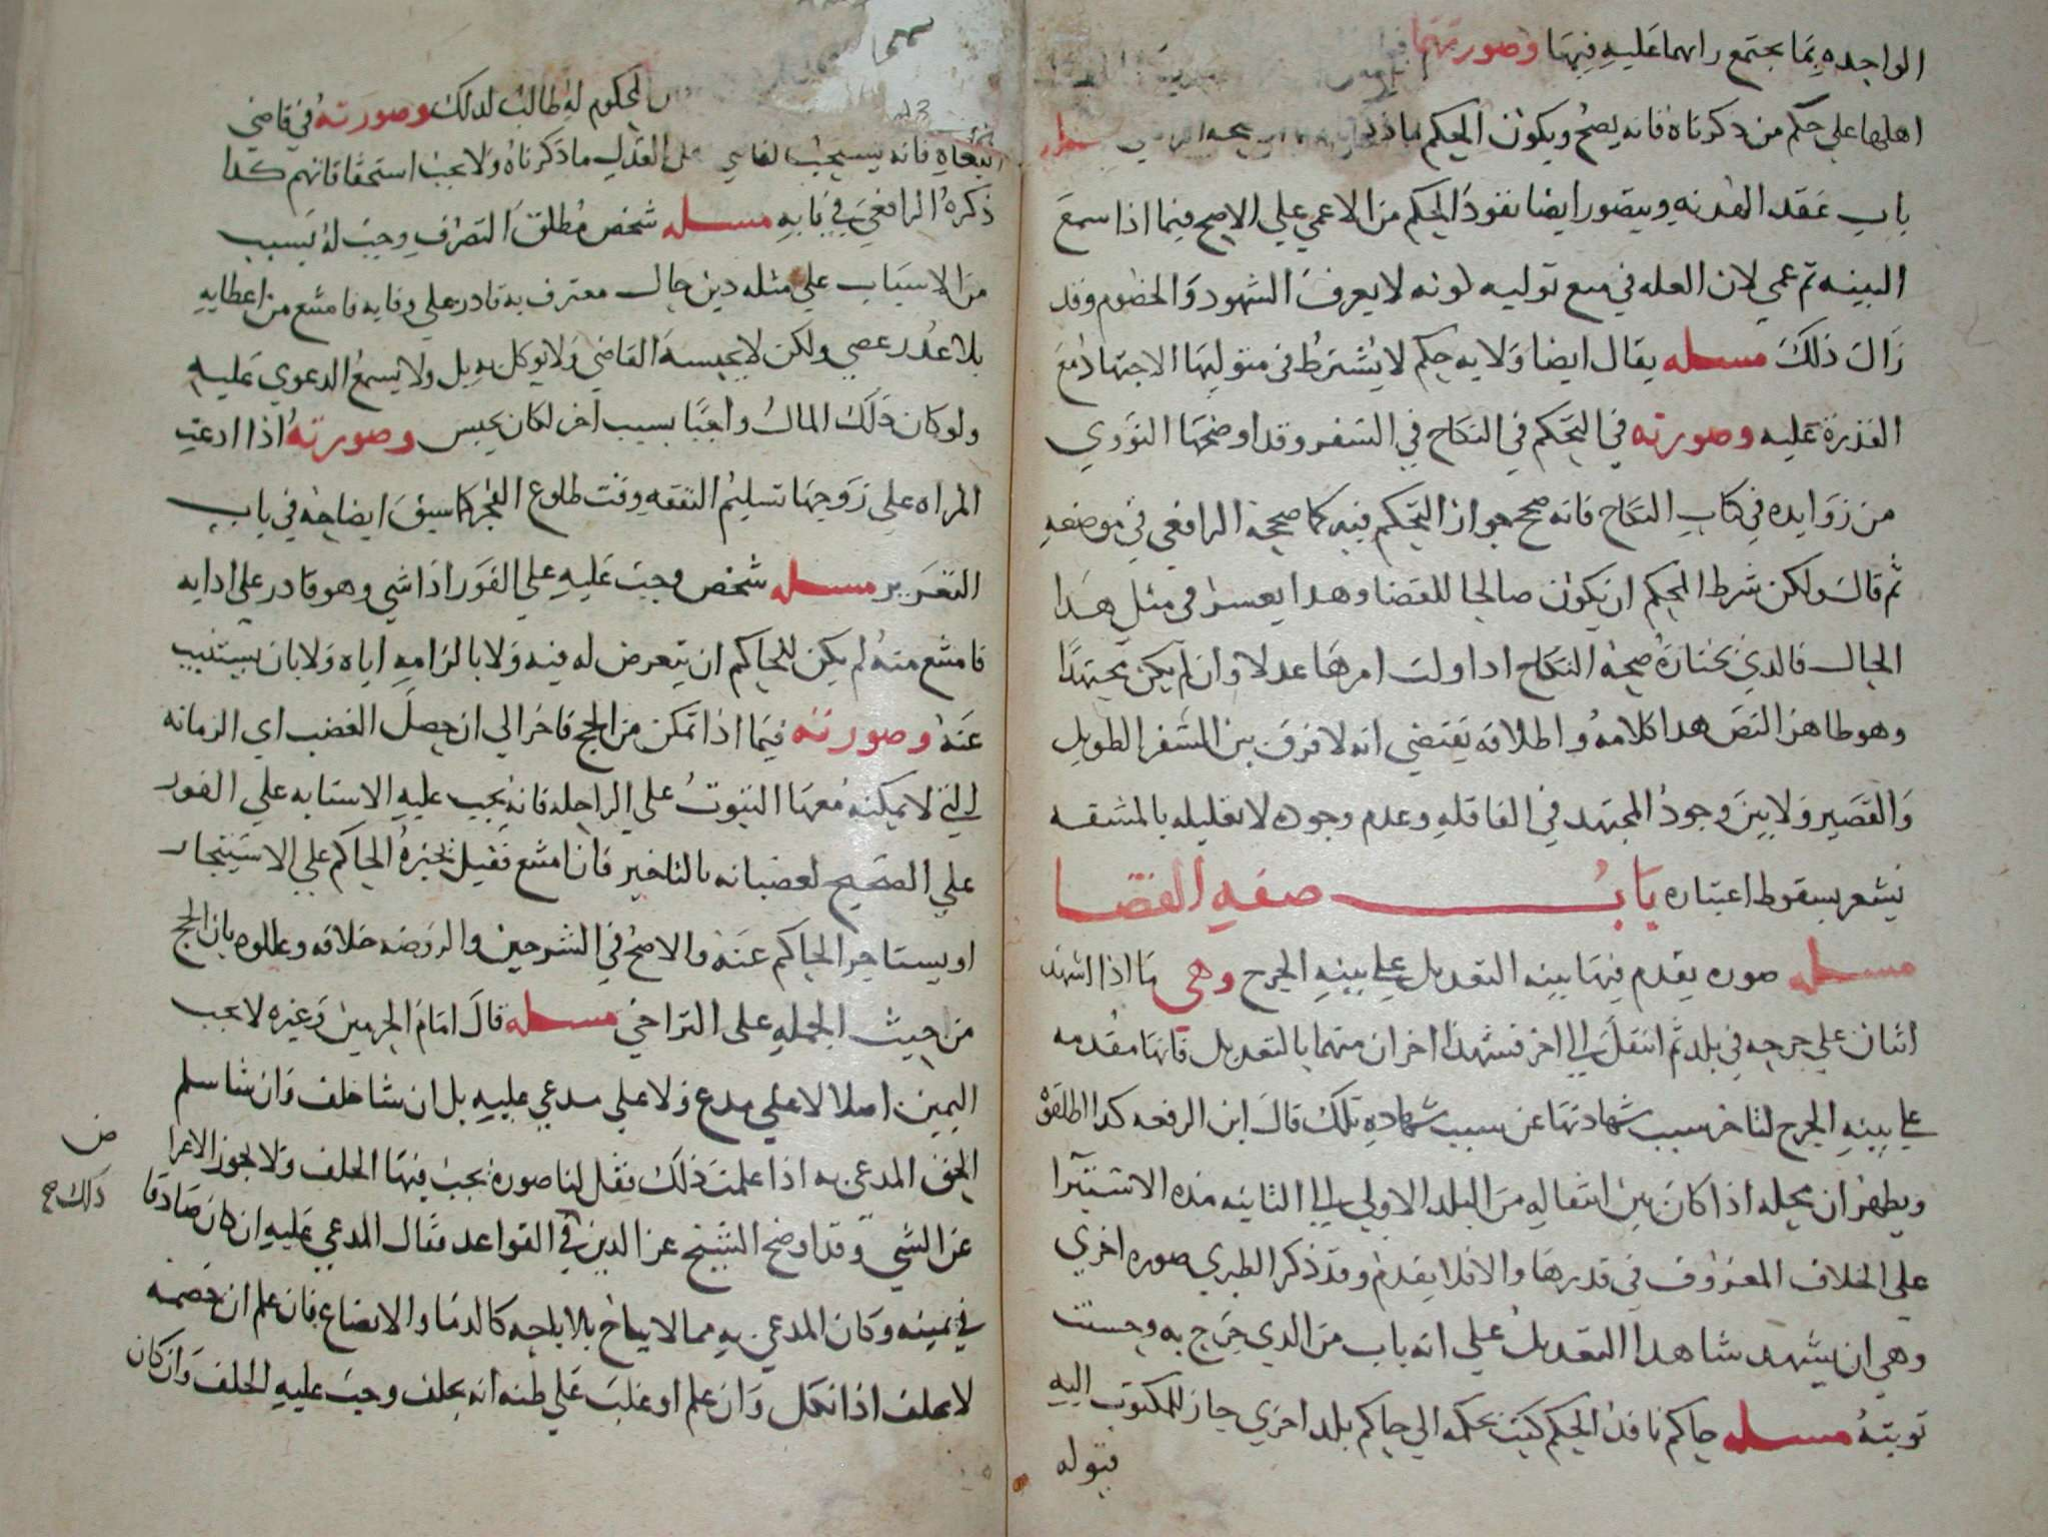 الواحده بما يجتمع رايهما عليه فيها وصورتهما
اهلها علي حكم من ذكرناه فانه يصح ويكون الحكم ما ذكر
باب عقد الهدنه ويتصور ايضا نفوذ الحكم من الاعمي علي الاصح فيما اذا سمع
البينه ثم عمي لان العله في منع توليه كونه لا يعرف الشهود والخصوم وقد
زال ذلك مسله يقال ايضا ولايه حكم لا يشترط في متوليها الاجتهاد مع
القدرة عليه وصورته في التحكم في النكاح في السفر وقد اوضحها النووي
من زوايده في كتاب النكاح فانه صحح جواز التحكم فيه كما صححه الرافعي في موضعه
ثم قال ولكن شرط المحكم ان يكون صالحا للقضا وهدا يعسر في مثل هدا
الحال فالدي نختاره صحه النكاح ادا ولت امرها عدلا وان لم يكن مجتهدا
وهو ظاهر النص هدا كلامه واطلاقه يقتضي انه لا فرق بين السفر الطويل
والقصير ولا بين وجود المجتهد في القافله وعدم وجوده لا تعليله بالمشقه
يشعر بسقوط اعتباره باب صفه القضا
مسله صوره يقدم فيها بينه التعديل علي بينه الجرح وهي ما اذا شهد
اثنان علي جرحه في بلد ثم انتقل الي اخر فشهد اخران منهما بالتعديل فانها مقدمه
علي بينه الجرح لتاخر سبب شهادتها عن سبب شهاده تلك قال ابن الرفعه كدا اطلقوه
ويظهر ان محله اذا كان بين انتقاله من البلد الاولي الي الثانيه مده الاستبرا
علي الخلاف المعروف في قدرها والا فلا يقدم وقد ذكر الطبري صوره اخري
وهي ان يشهد شاهدا التعديل علي انه باب من الدي جرح به وحسنت
توبته مسله حاكم نافد الحكم كتب بحكمه الي حاكم بلد اخري جاز للمكتوب اليه
قبوله
المحكوم له طالب لدلك وصورته في قاضي
البغاه فانه يستحب لقاضي اهل العدل ما ذكرناه ولا يجب استحقاقا لهم كدا
ذكره الرافعي في بابه مسله شخص مطلق التصرف وجب له بسبب
من الاسباب علي مثله دين حال معترف به قادر علي وفايه فامتنع من اعطايه
بلا عدر عصي ولكن لا يحبسه القاضي ولا يوكل به بل ولا يسمع الدعوي عليه
ولو كان ذلك المال واجبا بسبب اخر لكان يحبس وصورته اذا ادعت
المراه علي زوجها تسليم النفقه وقت طلوع الفجر كما سبق ايضاحه في باب
التعزير مسله شخص وجب عليه علي الفور اداشي وهو قادر علي ادايه
فامتنع منه لم يكن للحاكم ان يتعرض له فيه ولا بالزامه اياه ولا بان يستنيب
عنه وصورته فيما اذا تمكن من الحج فاخر الي ان حصل العضب اي الزمانه
التي لا يمكنه معها الثبوت علي الراحله فانه يجب عليه الاستنابه علي الفور
علي الصحيح لعصيانه بالتاخير فان امتنع فقيل يجبره الحاكم علي الاستيجار
او يستاجر الحاكم عنه والاصح في الشرحين والروضه خلافه وعللوه بان الحج
من حيث الجمله علي التراخي مسله قال امام الحرمين وغيره لا يجب
اليمين اصلا لا علي مدع ولا علي مدعي عليه بل ان شا حلف وان شا سلم
الحق المدعي به اذا علمت ذلك فقل لنا صوره يجب فيها الحلف ولا يجوز الاعرا
ض
عن الشي وقد اوضح الشيخ عز الدين في القواعد فقال المدعي عليه ان كان صادقا
ذلك صح
في يمينه وكان المدعي به مما لا يباح بالاباحه كالدما والابضاع فان علم ان خصمه
لا يحلف اذا نكل وان علم او غلب علي ظنه انه يحلف وجب عليه الحلف وان كان